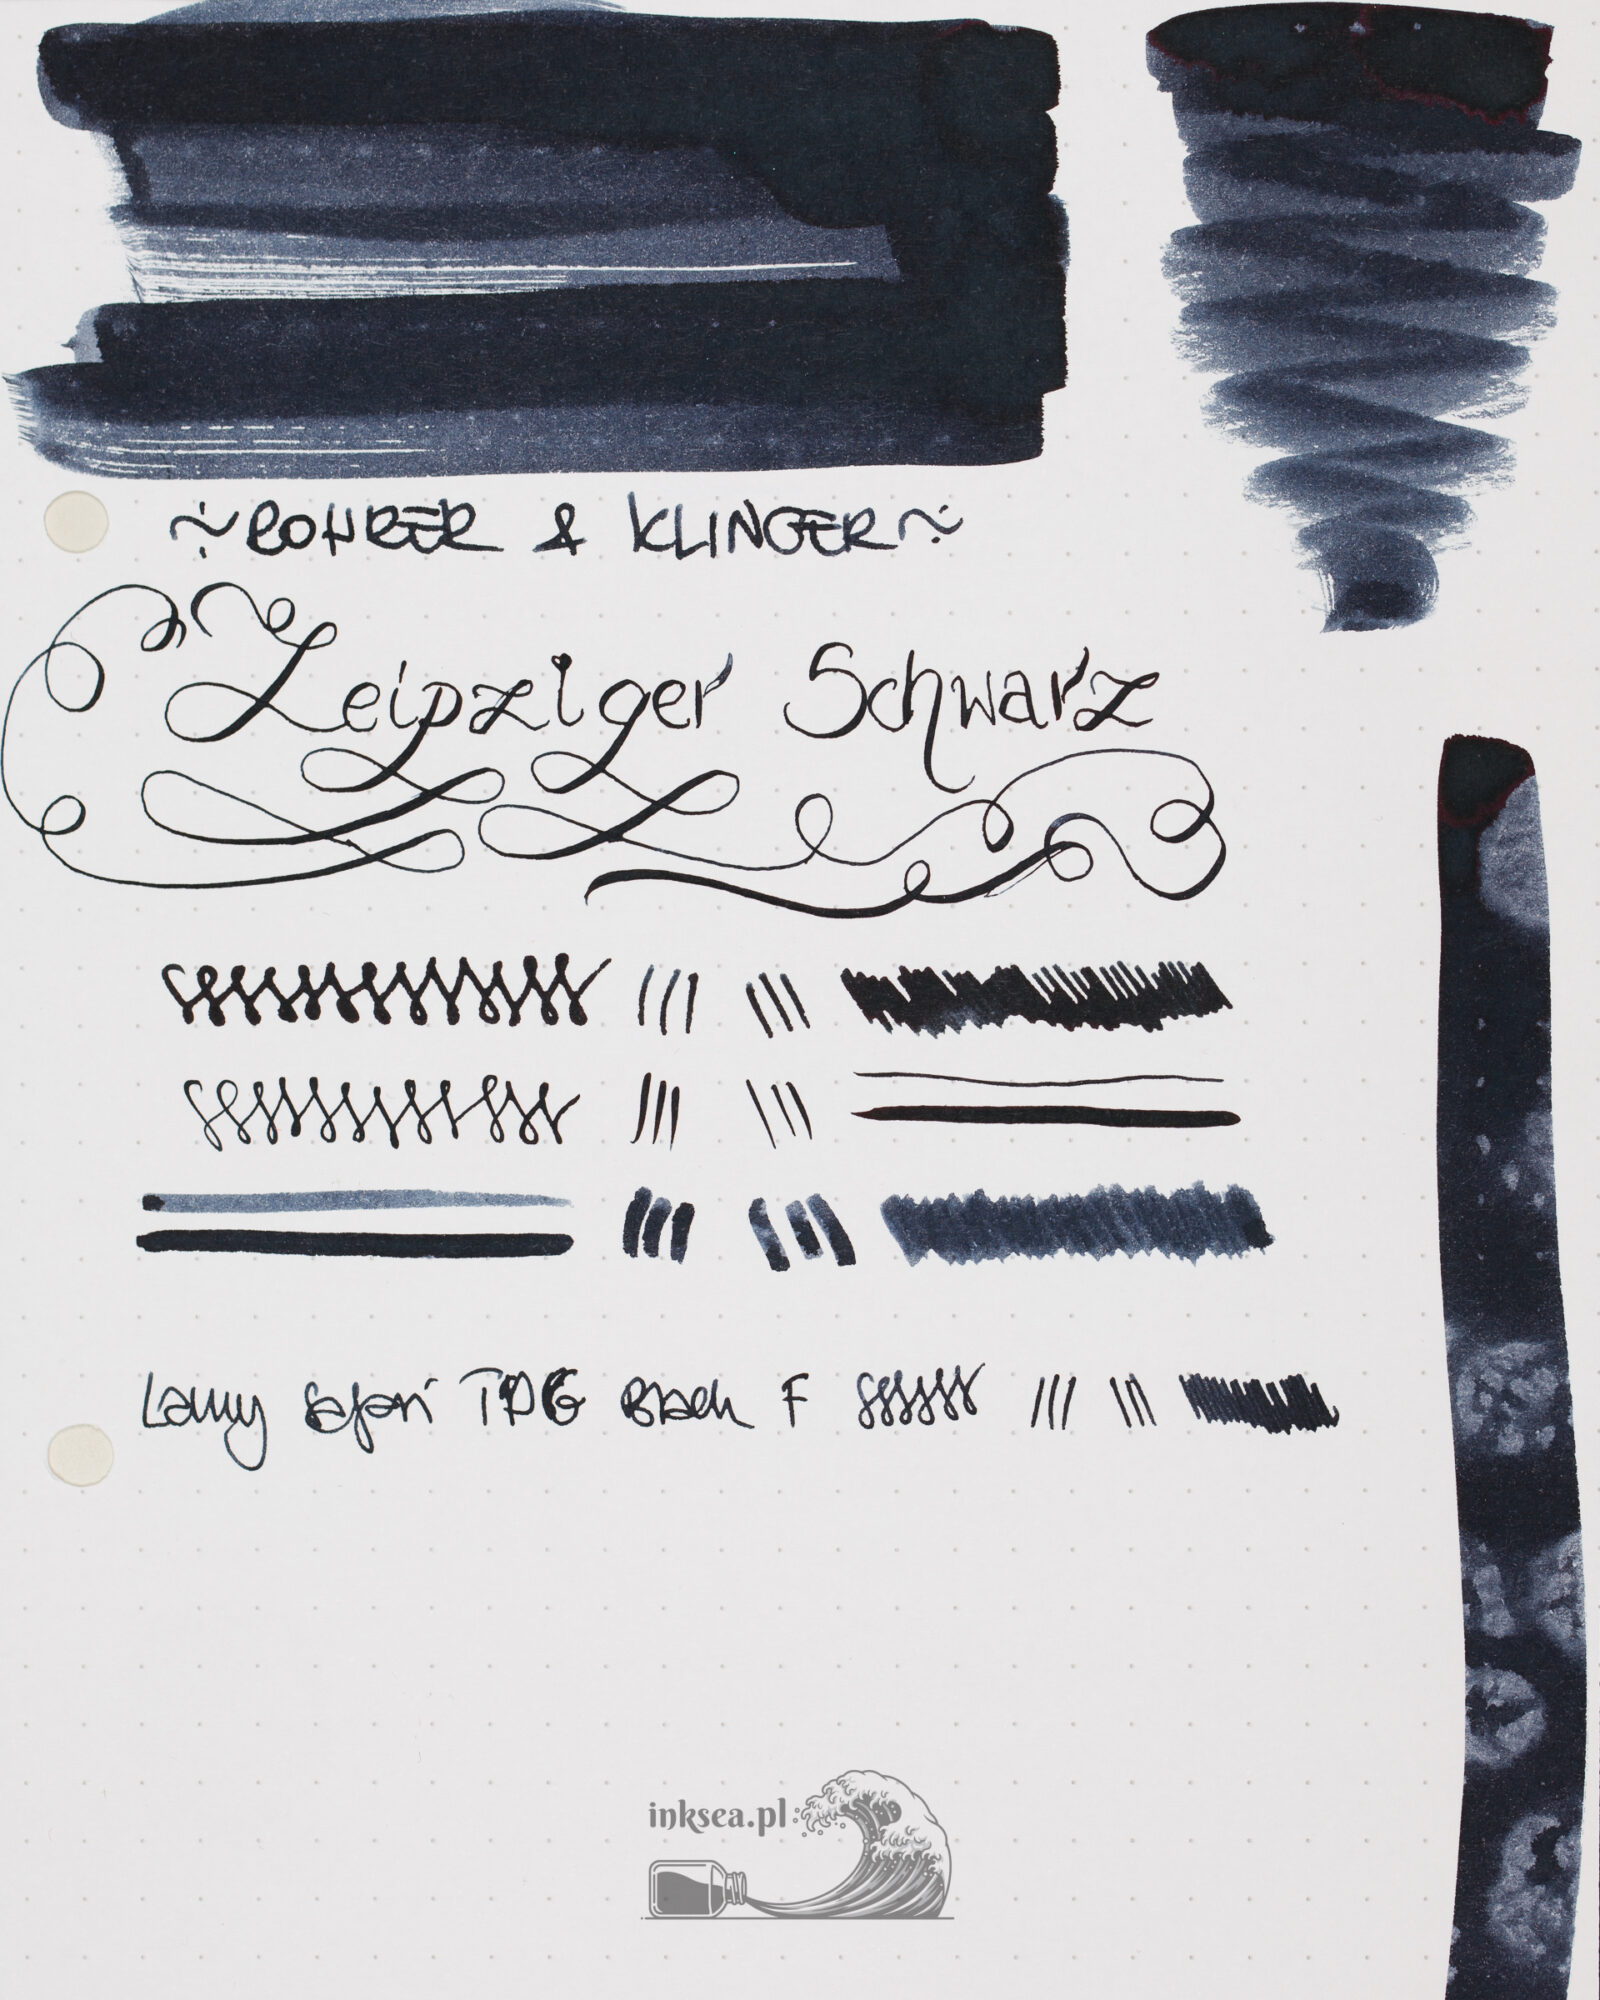 ~ROHRER & KLINGER~
Leipziger Schwarz
Lamy Safari TDG Black F
inksea.pl